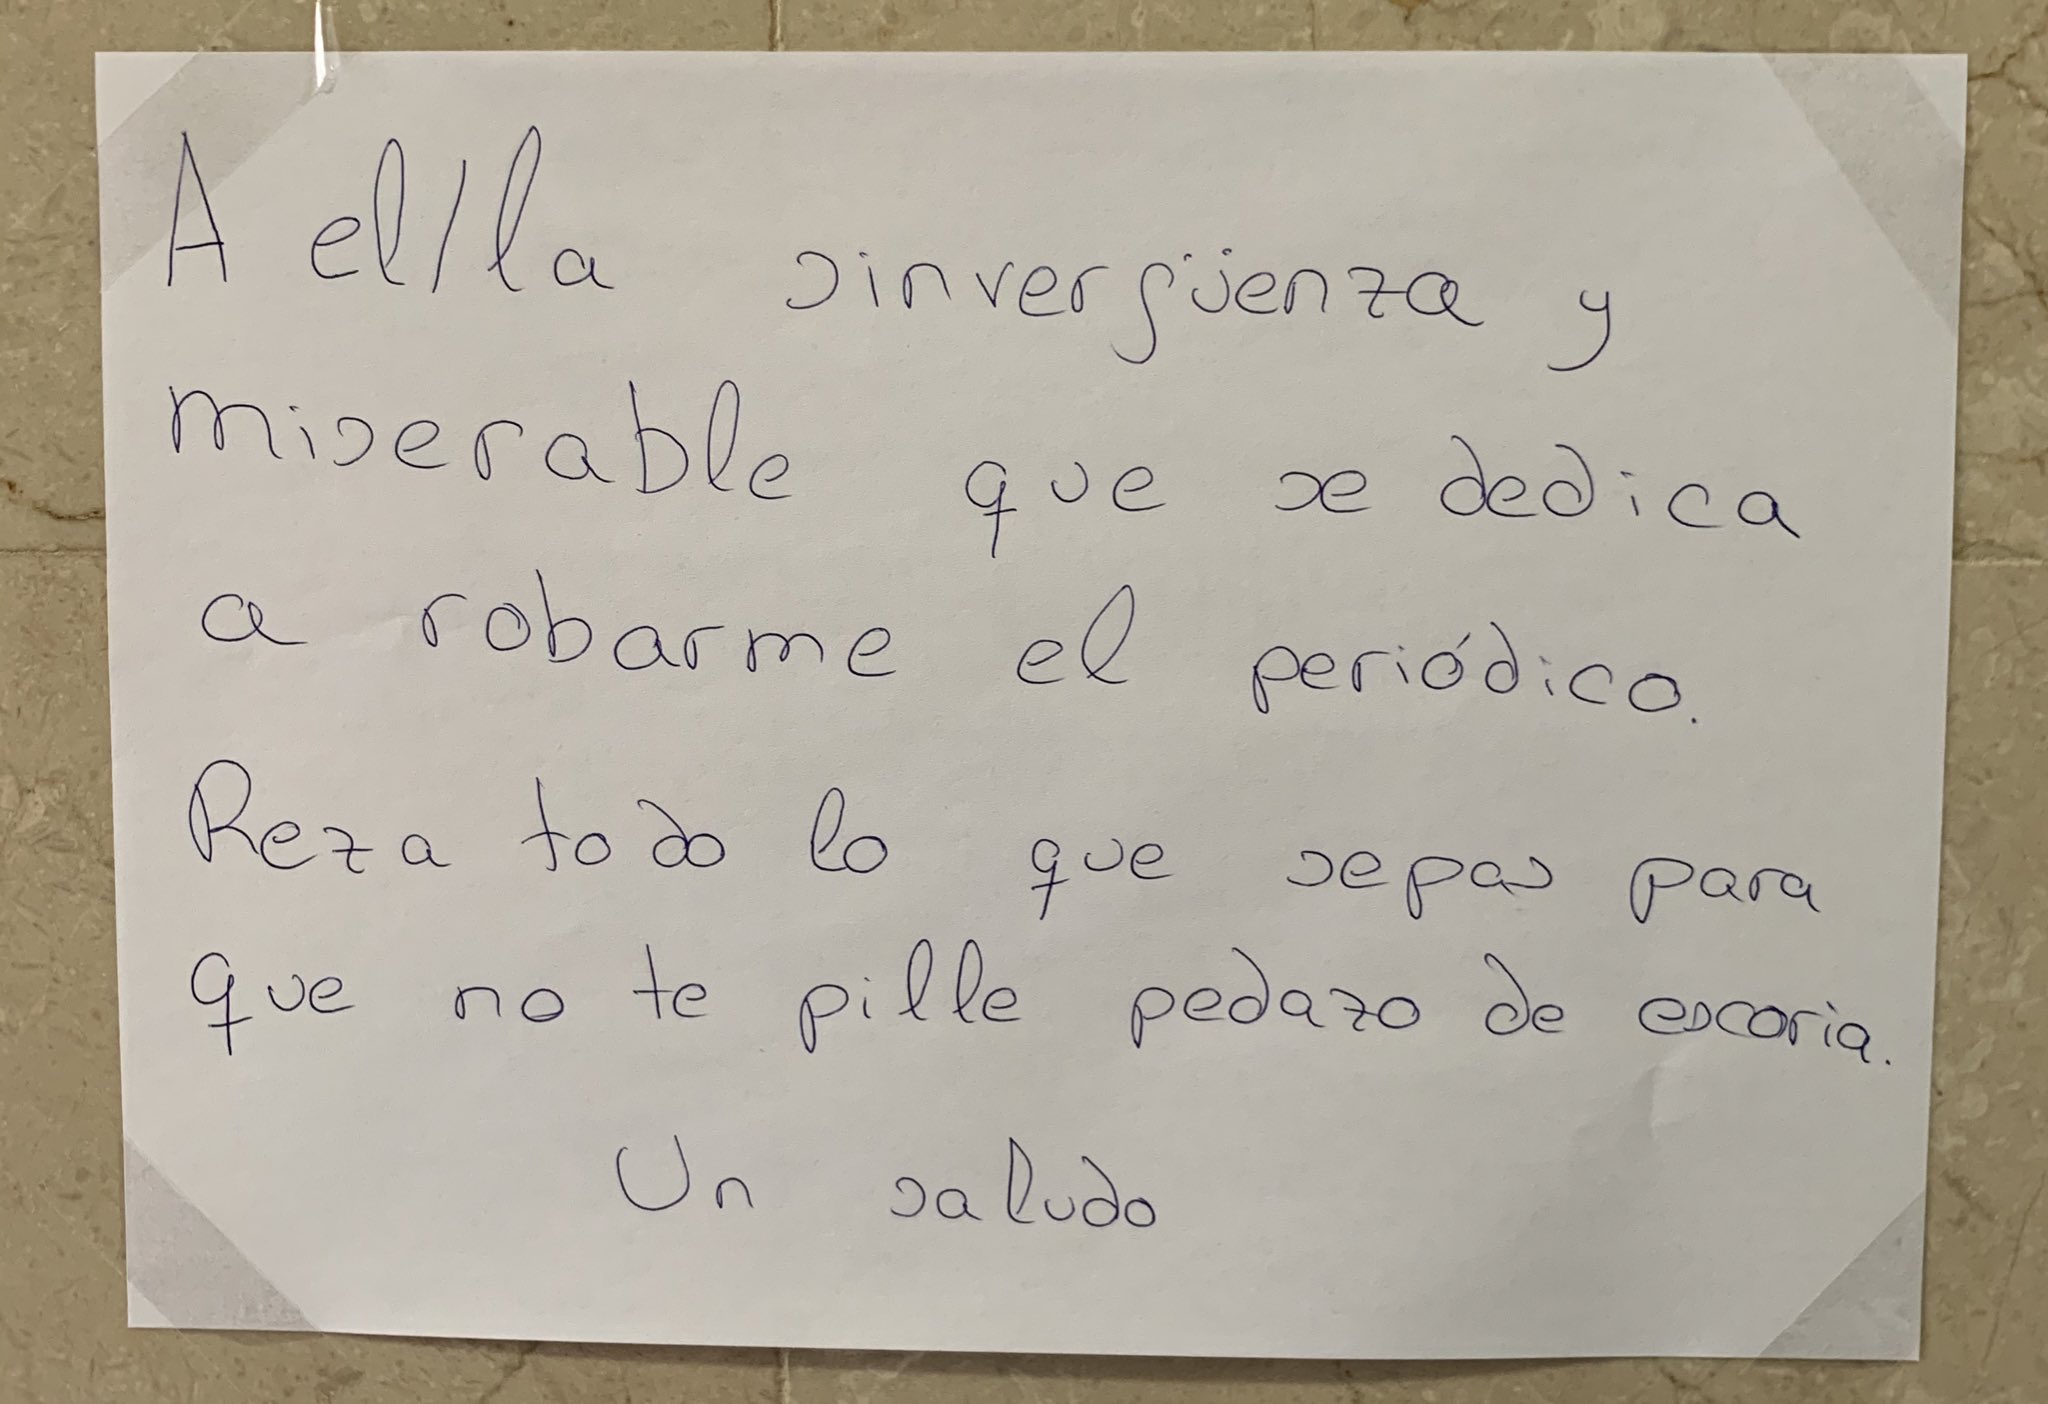 A el/la sinvergüenza y
miserable que se dedica
a robarme el periódico.
Reza todo lo que sepas para
que no te pille pedazo de escoria.
Un saludo